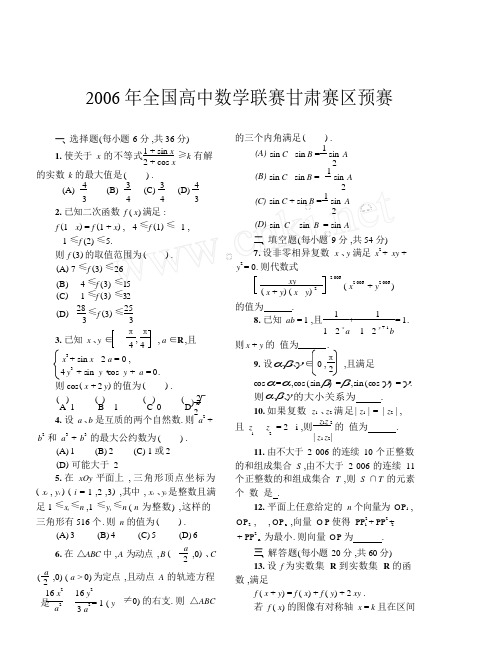 2006 年全国高中数学联赛甘肃赛区预赛
一、选择题(每小题 6 分 ,共 36 分)
1. 使关于 x 的不等式 1 + sin x / 2 + cos x ≥k 有解
的实数 k 的最大值是( ) .
(A) 4/3 (B) 3/4 (C) 3/4 (D) 4/3
2. 已知二次函数 f ( x) 满足 :
f (1 x) = f (1 + x) , 4 ≤f (1) ≤ 1 ,
1 ≤f (2) ≤5.
则 f (3) 的取值范围为( ) .
(A) 7 ≤f (3) ≤26
(B) 4 ≤f (3) ≤15
(C) 1 ≤f (3) ≤32
(D) 28/3 ≤f (3) ≤25/3
3. 已知 x 、y ∈ π/4 , π/4 , a ∈R ,且
x³ + sin x 2 a = 0 ,
4 y³ + sin y cos y + a = 0.
则 cos( x + 2 y) 的值为( ) .
(A) 1 (B) 1 (C) 0 (D)
4. 设 a 、b 是互质的两个自然数. 则 a² +
b² 和 a³ + b³ 的最大公约数为( ) .
(A) 1 (B) 2 (C) 1 或 2
(D) 可能大于 2
5. 在 xOy 平面上 , 三角形顶点坐标为
( xᵢ , yᵢ ) ( i = 1 ,2 ,3) ,其中 , xᵢ 、yᵢ 是整数且满
足 1 ≤xᵢ ≤n ,1 ≤yᵢ ≤n ( n 为整数) ,这样的
三角形有 516 个. 则 n 的值为( ) .
(A) 3 (B) 4 (C) 5 (D) 6
6. 在 △ABC 中 , A 为动点 , B ( a/2 ,0) 、C
( a/2 ,0) ( a > 0) 为定点 ,且动点 A 的轨迹方程
是 16 x²/a² 16 y²/3 a² = 1 ( y ≠0) 的右支. 则 △ABC
的三个内角满足( ) .
(A) sin C sin B = 1/2 sin A
(B) sin C sin B = 1/2 sin A
(C) sin C + sin B = 1/2 sin A
(D) sin C sin B = sin A
二、填空题(每小题 9 分 ,共 54 分)
7. 设非零相异复数 x 、y 满足 x² + xy +
y² = 0. 则代数式
[ xy / ( x + y) ( x y) ² ] 2 006 ( x2 006 + y2 006 )
的值为 .
8. 已知 ab = 1 ,且 1 / 1 2 x a + 1 / 1 2 y + 1 b = 1.
则 x + y 的 值为 .
9. 设 α、β、γ ∈ 0 , π/2 ,且满足
cos α = α, cos (sin β) = β, sin (cos γ) = γ.
则 α、β、γ 的大小关系为 .
10. 如果复数 z₁ 、z₂ 满足| z₁ | = | z₂ | ,
且 z₁ z₂ = 2 i ,则 z₁z₂ / | z₁z₂| 的 值为 .
11. 由不大于 2 006 的连续 10 个正整数
的和组成集合 S ,由不大于 2 006 的连续 11
个正整数的和组成集合 T ,则 S ∩ T 的元素
个 数 是 .
12. 平面上任意给定的 n 个向量为 OP₁ ,
OP₂ , , OPₙ ,向量 O P 使得 PP₁² + PP₂² +
+ PPₙ² 为最小. 则向量 OP 为 .
三、解答题(每小题 20 分 ,共 60 分)
13. 设 f 为实数集 R 到实数集 R 的函
数 ,满足
f ( x + y) = f ( x) + f ( y) + 2 xy .
若 f ( x) 的图像有对称轴 x = k 且在区间